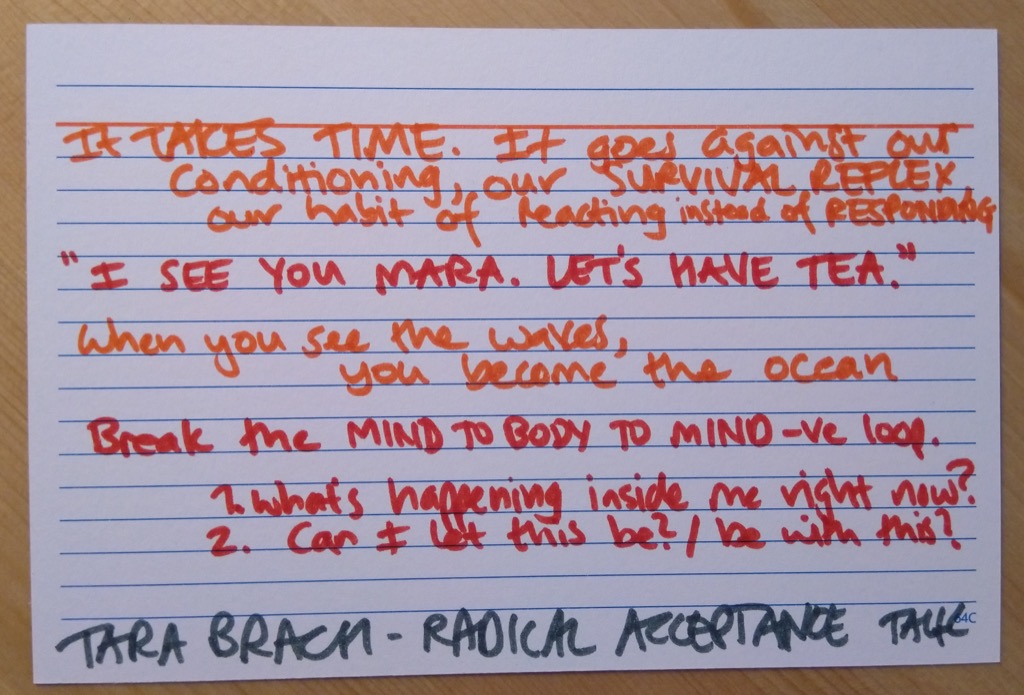 It TAKES TIME. It goes against our
conditioning, our SURVIVAL REFLEX
our habit of reacting instead of RESPONDING
"I SEE YOU MARA. LET'S HAVE TEA."
When you see the waves,
you become the ocean
Break the MIND TO BODY TO MIND -ve loop.
1. What's happening inside me right now?
2. Can I let this be? / be with this?
64C
TARA BRACH - RADICAL ACCEPTANCE TALK